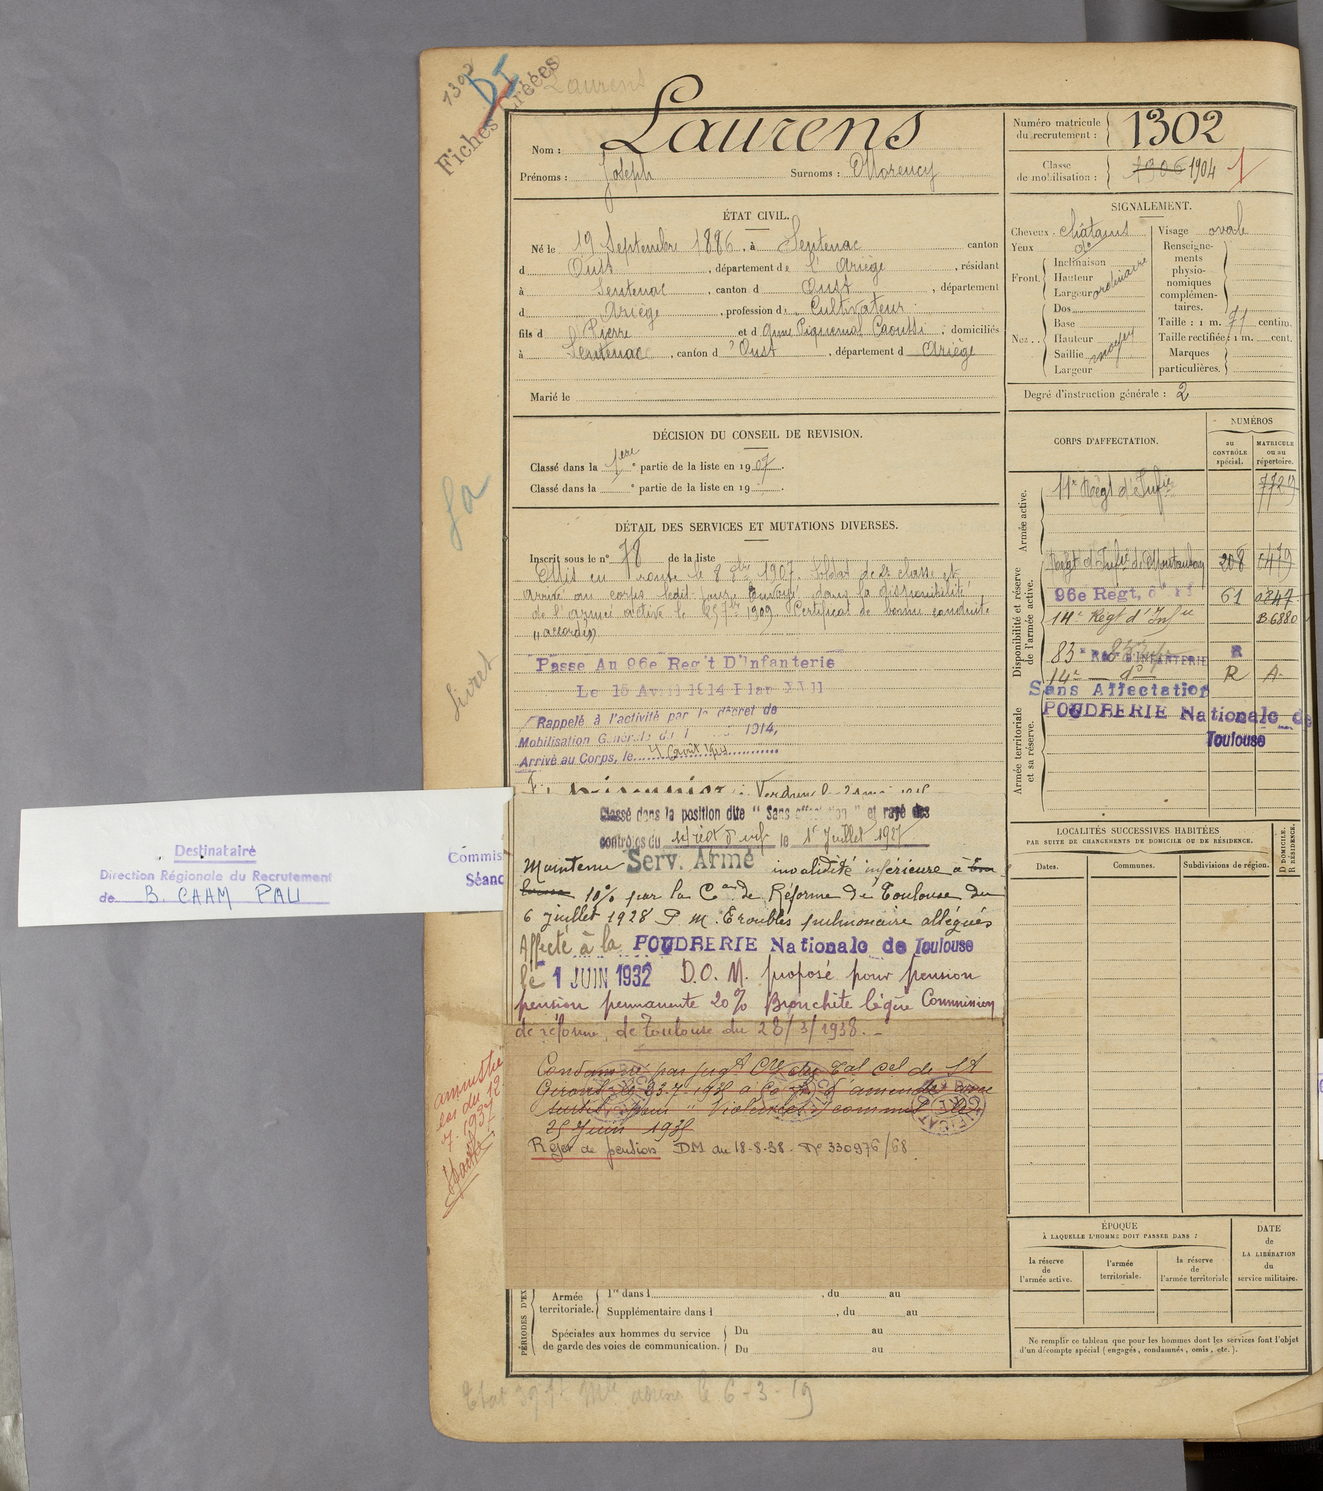 1302
DI
Fiches créées
Laurens
Nom : Laurens
Prénoms : Joseph Surnoms : Morency
Numéro matricule du recrutement : 1302
Classe de mobilisation : 1906 1904 1
ÉTAT CIVIL.
Né le 19 Septembre 1886, à Sentenac canton
d Oust, département de l'Ariège, résidant
à Sentenac, canton d Oust, département
d Ariège, profession de Cultivateur
fils d Pierre et d Anne Piquemal Caoussi, domiciliés
à Sentenac, canton d'Oust, département d Ariège
Marié le
SIGNALEMENT.
Cheveux châtains
Yeux do
Front. Inclinaison
Hauteur
Largeur ordinaire
Nez. Dos
Base
Hauteur
Saillie moyen
Largeur
Visage ovale
Renseignements physionomiques complémentaires.
Taille : 1 m. 71 centim.
Taille rectifiée : 1 m. cent.
Marques particulières.
Degré d'instruction générale : 2
DÉCISION DU CONSEIL DE REVISION.
Classé dans la 1ère partie de la liste en 1907.
Classé dans la e partie de la liste en 19
DÉTAIL DES SERVICES ET MUTATIONS DIVERSES.
Inscrit sous le n° 78 de la liste
en route le 8 8bre 1907. Soldat de 2e classe et
arrivé au corps ledit jour. Envoyé dans la disponibilité
de l'armée active le 25 7bre 1909 Certificat de bonne conduite
"accordé"
Passe Au 96e Reg't D'Infanterie
Le 15 Avril 1914 Plan XVII
Rappelé à l'activité par le décret de
Mobilisation Générale du 1 1914,
Arrivé au Corps, le 4 Août 1914
Classé dans la position dite "Sans affectation" et rayé des
contrôles du 14e régt d'inf le 1er Juillet 1927
Maintenu Serv. Armé invalidité inférieure à
10% par la Con de Réforme de Toulouse du
6 juillet 1928 P. M. Troubles pulmonaire allégués
Affecté à la POUDRERIE Nationale de Toulouse
le 1 JUIN 1932 D.O.M. proposé pour pension
pension permanente 20% Bronchite légère Commission
de réforme, de Toulouse du 28/3/1938.
Condamné par jugt Ctre du Tal cel de St
Girons le 23.7.1935 à 50 frs d'amende avec
sursis pour "Violences" commis le
25 Juin 1935
Rejet de pension DM du 18-8-38. N° 330976/68
CORPS D'AFFECTATION.
NUMÉROS
au CONTRÔLE spécial.
MATRICULE ou au répertoire.
Armée active.
11e Régt d'Infie
Disponibilité et réserve de l'armée active.
Régt d'Infie de Montauban 208
96e Regt, 61
14e Régt d'Infie B.6880
83e RÉG. D'INFANTERIE R
14e do R A
Armée territoriale et sa réserve.
Sans Affectation
POUDRERIE Nationale de
Toulouse
LOCALITÉS SUCCESSIVES HABITÉES
PAR SUITE DE CHANGEMENTS DE DOMICILE OU DE RÉSIDENCE.
Dates. Communes. Subdivisions de région. D DOMICILE. R RÉSIDENCE.
ÉPOQUE
À LAQUELLE L'HOMME DOIT PASSER DANS :
la réserve de l'armée active.
l'armée territoriale.
la réserve de l'armée territoriale
DATE de LA LIBÉRATION du service militaire.
Ne remplir ce tableau que pour les hommes dont les services font l'objet
d'un décompte spécial (engagés, condamnés, omis, etc.).
PÉRIODES D'EX
Armée territoriale. 1re dans l , du au
Supplémentaire dans l , du au
Spéciales aux hommes du service
de garde des voies de communication. Du au
Du au
Livret
amnistié
loi du 12.
7. 1937
Destinataire
Direction Régionale du Recrutement
de B. CAAM PAU
Commis
Séanc
le 6-3-19